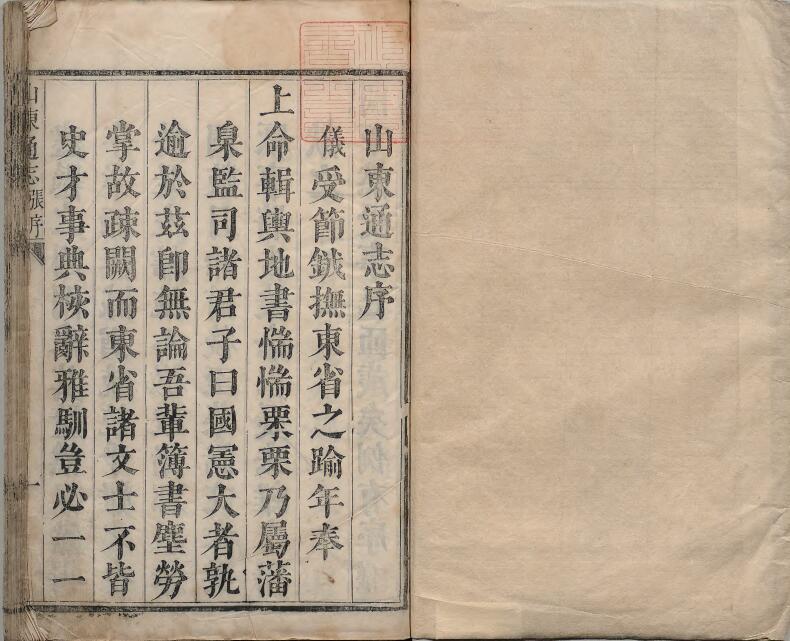 山東通志序
儀受節鉞撫東省之踰年奉
上命輯輿地書惴惴栗栗乃屬藩
臬監司諸君子曰國憲大者孰
逾於茲卽無論吾輩簿書塵勞
掌故疎闕而東省諸文士不皆
史才事典核辭雅馴豈必一一
山東通志 張序 一